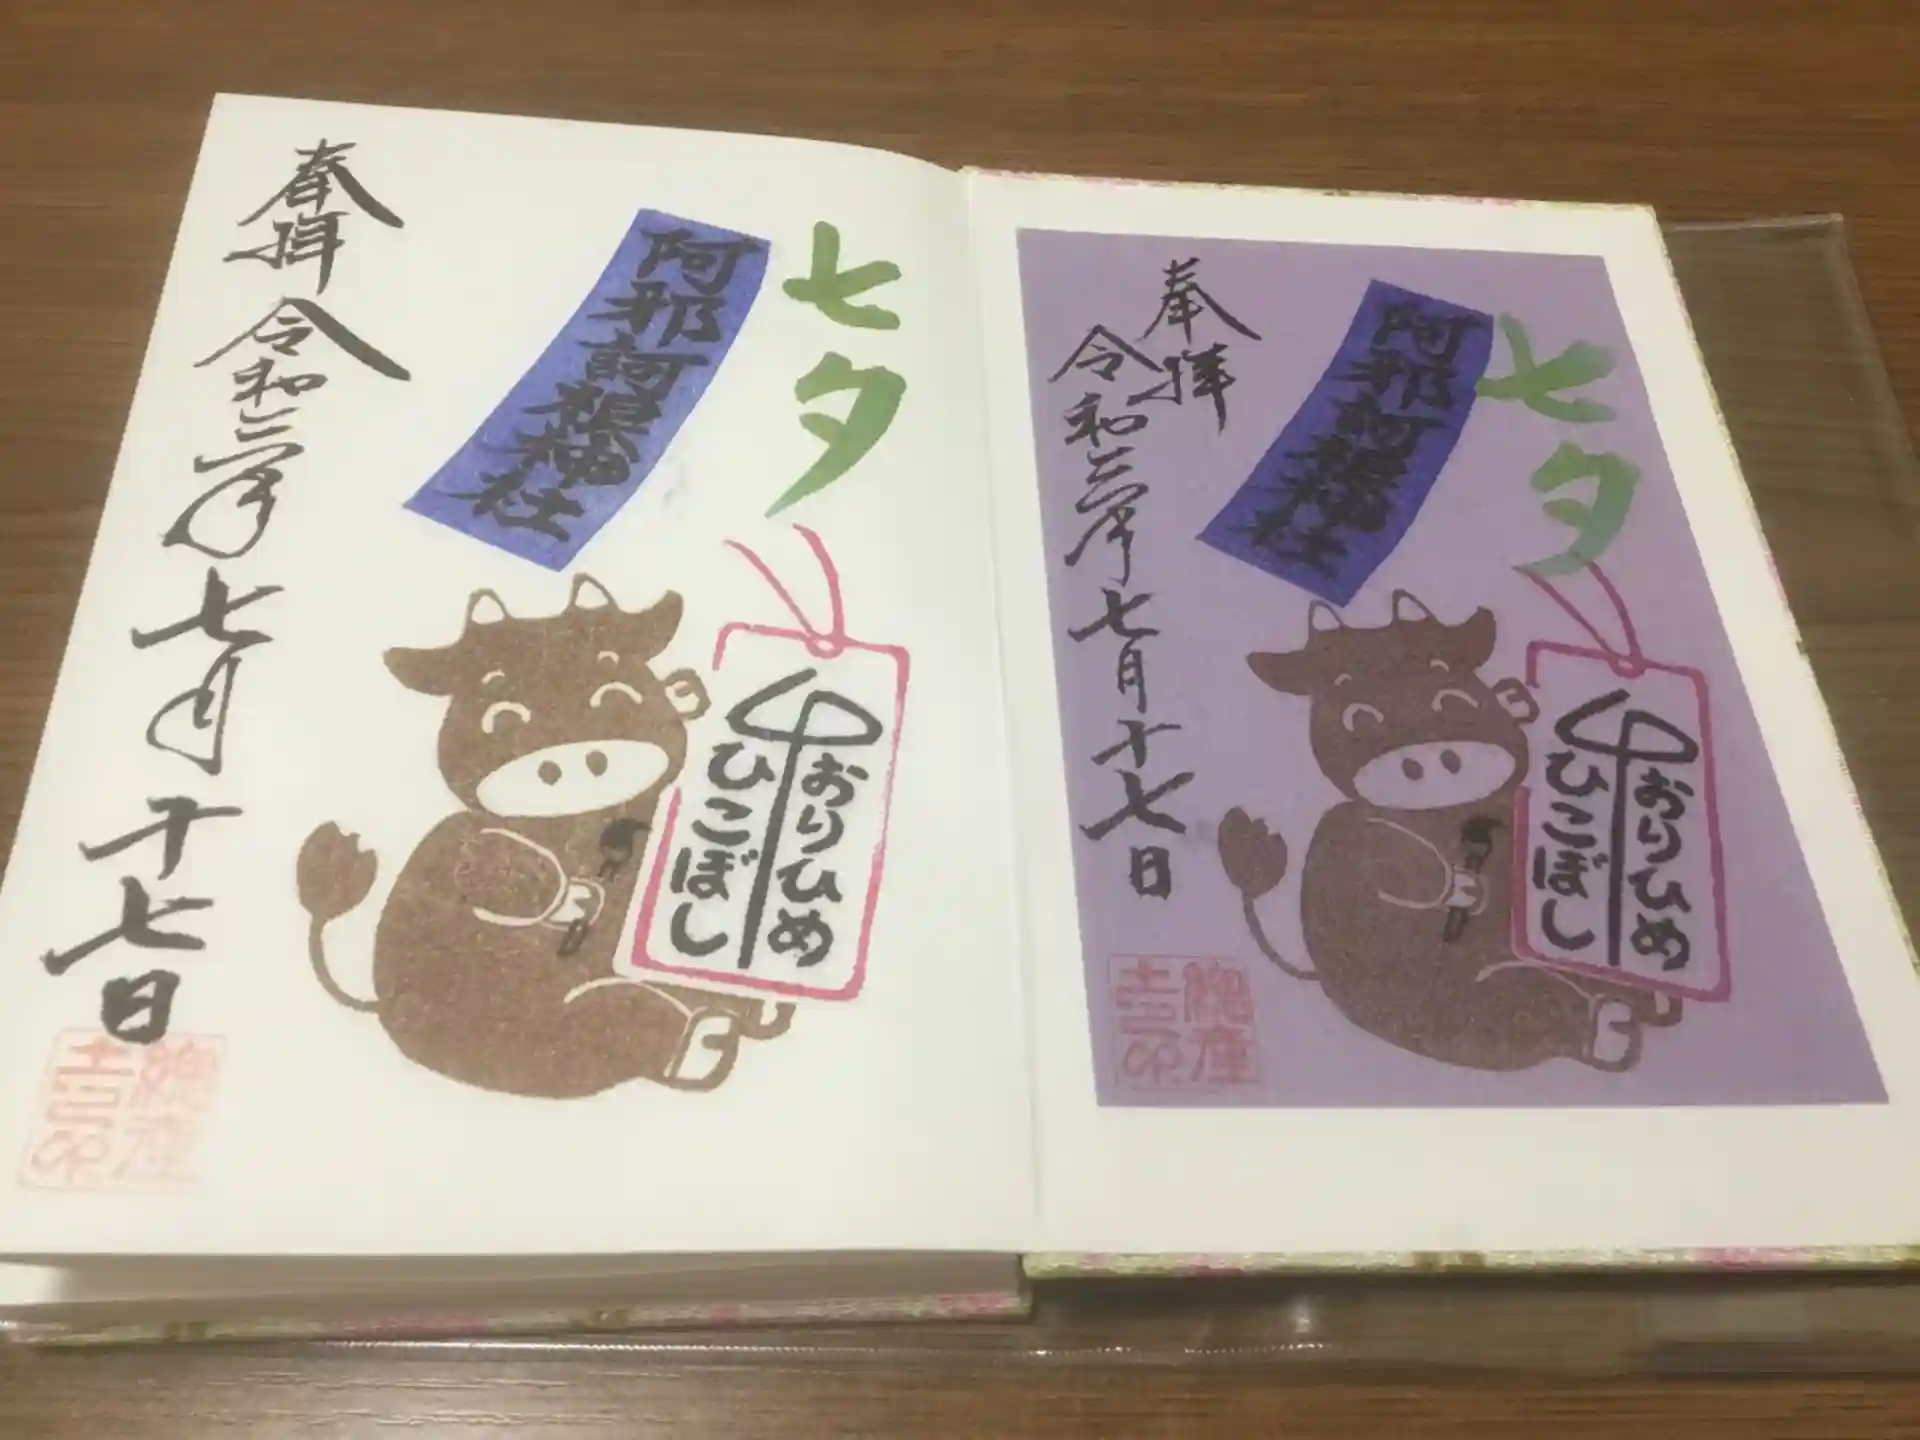 七夕
阿邪訶根神社
奉拝
令和三年七月十七日
おりひめ
ひこぼし
総産
土印
七夕
阿邪訶根神社
奉拝
令和三年七月十七日
おりひめ
ひこぼし
総産
土印